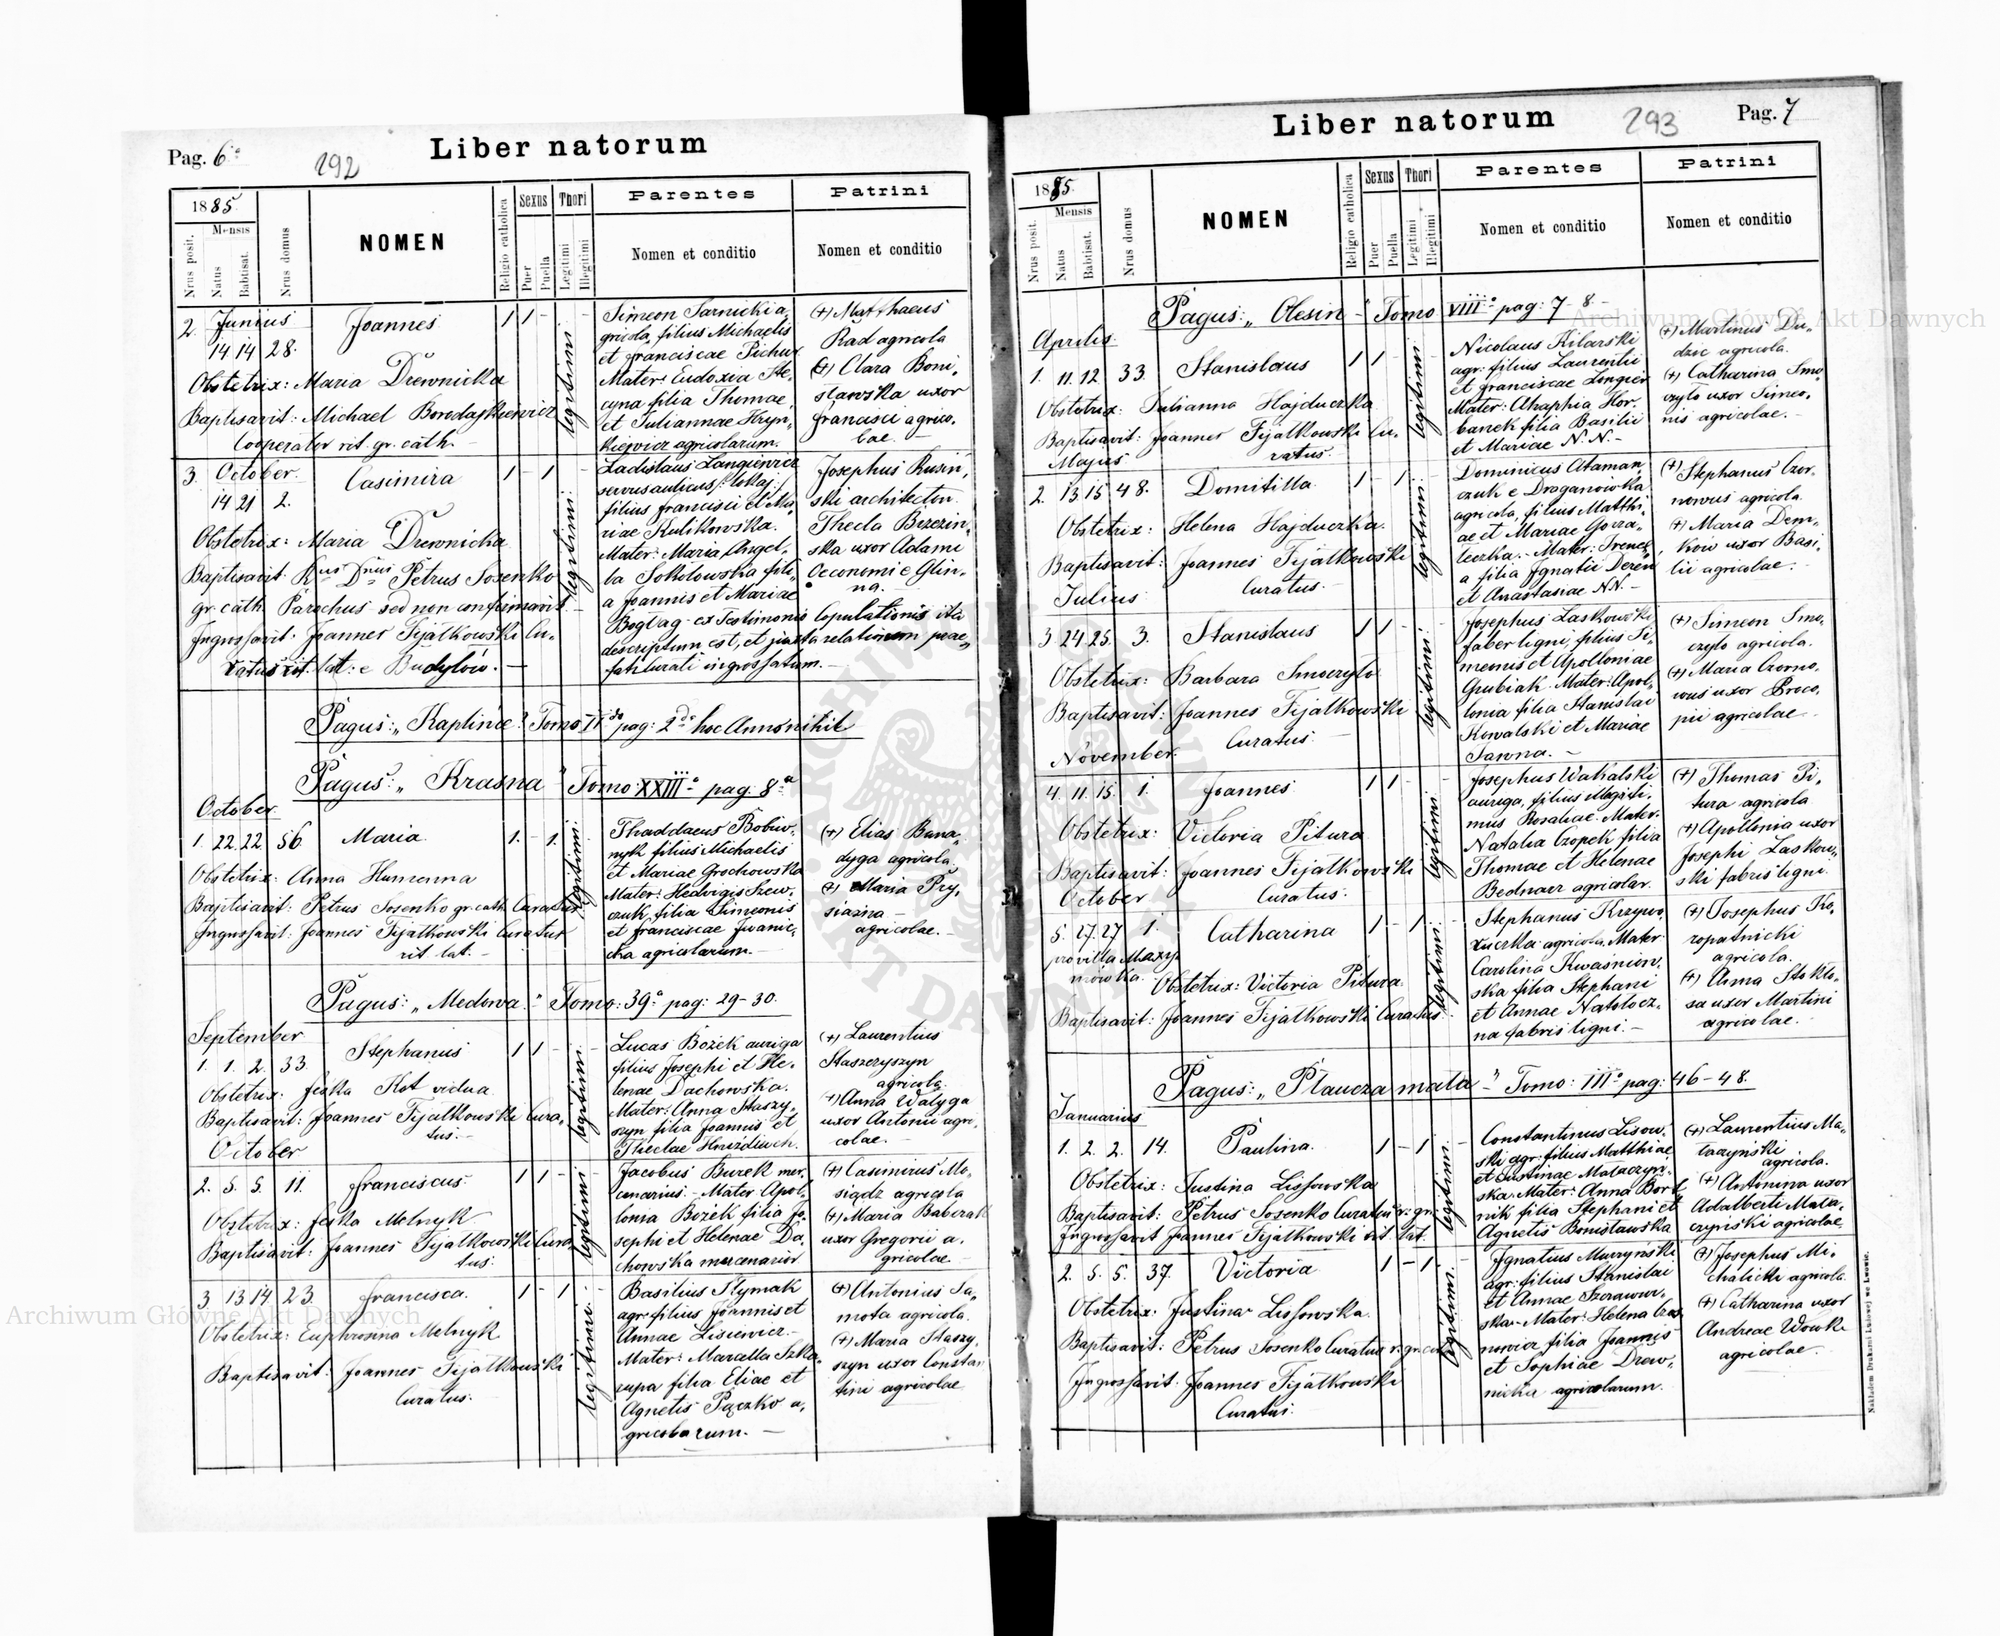 Pag. 6
292
Liber natorum
1885
Mensis
Nrus posit.
Natus
Babtisat.
Nrus domus
NOMEN
Religio catholica
Sexus
Puer
Puella
Thori
Legitimi
Illegitimi
Parentes
Nomen et conditio
Patrini
Nomen et conditio
2. Junius
14 14 28.
Joannes
1 1 -
legitimi
Obstetrix: Maria Drewnicka
Baptisavit: Michael
Cooperator rit. gr. cath. -
Simeon Sarnicki a,
gricola, filius Michaelis
et Franciscae
Mater: Eudoxia Ste,
cyna filia Thomae,
et Juliannae Hryn,
kiewicz agricolarum.
(+) Matthaeus
Rad agricola
(+) Clara Boni,
sławska uxor
Francisci agrico,
lae. -
3. October.
14 21 2.
Casimira
1 - 1
legitimi
Obstetrix: Maria Drewnicka
Baptisavit: Rdus Dnus Petrus Sosenko
gr. cath. Parochus sed non confirmavit
Ingrossavit: Joannes Fijałkowski Cu,
ratus rit. lat: e Budyłów. -
Ladislaus Longiewicz
servus aulicus /: lokaj :/
filius Francisci et Ma,
riae Kulikowska.
Mater: Maria Angel,
la Sokołowska fili,
a Joannis et Mariae
ex Testimonio Copulationis ita
descriptum est, et juxta relationem prae,
fati curati ingrossatum. -
Josephus Rusin,
ski architecton.
Thecla Brzezin,
ska uxor Adami
Oeconomi e Glin,
na.
Pagus: „Kaplince" Tomo II do pag: 2 da hoc Anno nihil
Pagus: „Krasna" Tomo XXIII o pag. 8 a
October
1. 22. 22. 56.
Maria.
1. - 1.
legitimi
Obstetrix: Anna Humenna
Baptisavit: Petrus Sosenko gr. cath. Curatus
Ingrossavit: Joannes Fijałkowski Curatus
rit. lat. -
Thaddaeus Bobiw,
nyk filius Michaelis
et Mariae Grochowska
Mater: Hedvigis Szew,
czuk, filia Simeonis
et Franciscae Iwanic,
cha agricolarum. -
(+) Elias Buna,
dyga agricola.
(+) Maria Pry,
siazna -
agricolae. -
Pagus: „Medowa" Tomo: 39 o pag: 29-30.
September
1. 1. 2. 33.
Stephanus
1 1 -
legitimi
Obstetrix: Jeska Kot vidua
Baptisavit: Joannes Fijałkowski Cura,
tus. -
Lucas Bożek auriga
filius Josephi et He,
lenae Dachowska.
Mater: Anna Staszy,
szyn filia Joannis et
Theclae Hnizdiuch.
(+) Laurentius
Staszczyszyn
agricola.
(+) Anna Wałyga
uxor Antonii agri,
colae. -
October
2. 5. 5. 11.
Franciscus
1 1 -
legitimi
Obstetrix: Jeska Melnyk
Baptisavit: Joannes Fijałkowski Cura,
tus.
Jacobus Burek mer,
cenarius. - Mater Apol,
lonia Bożek filia Jo,
sephi et Helenae Da,
chowska mercenarior.
(+) Casimirus Mo,
siądz agricola
(+) Maria Babczak
uxor Gregorii a,
gricolae.
3. 13 14 23.
Francisca.
1 - 1
legitimi
Obstetrix: Euphrosina Melnyk
Baptisavit: Joannes Fijałkowski
Curatus.
Basilius Slymak
agr: filius Joannis et
Annae Lisiewicz. -
Mater: Marcella Szka,
rupa filia Eliae et
Agnetis Pączko a,
gricolarum. -
(+) Antonius Sa,
mota agricola.
(+) Maria Staszy,
szyn uxor Constan
tini agricolae
Liber natorum
293
Pag. 7
1885.
Mensis
Nrus posit.
Natus
Babtisat.
Nrus domus
NOMEN
Religio catholica
Sexus
Puer
Puella
Thori
Legitimi
Illegitimi
Parentes
Nomen et conditio
Patrini
Nomen et conditio
Pagus: „Olesin" - Tomo VIII o pag: 7-8. -
Aprilis.
1. 11. 12 33.
Stanislaus
1 1
legitimi
Obstetrix: Julianna Hajduczka
Baptisavit: Joannes Fijałkowski Cu,
ratus.
Nicolaus Kilarski
agr: filius Laurentii
et Franciscae
Mater: Ahaphia Hor,
banek filia Basilii
et Mariae N. N. -
(+) Martinus Du,
dzic agricola.
(+) Catharina Smo,
czyło uxor Simeo,
nis agricolae. -
Majus
2. 13 15 48.
Domitilla
1 - 1
legitimi
Obstetrix: Helena Hajduczka.
Baptisavit: Joannes Fijałkowski
Curatus. -
Dominicus Ataman,
czuk e Draganówka
agricola, filius Matthi,
ae et Mariae
Mater: Irene,
a filia Ignatii Deren
et Anastasiae N.N. -
(+) Stephanus Czor,
nowus agricola.
(+) Maria Dem,
ków uxor Basi,
lii agricolae. -
Julius
3 24 25. 3.
Stanislaus
1 1
legitimi
Obstetrix: Barbara Smoczyło
Baptisavit: Joannes Fijałkowski
Curatus. -
Josephus Laskowski
faber ligni, filius Si,
meonis et Apolloniae
Grubiak. Mater: Apol,
lonia filia Stanislai
Kowalski et Mariae
Janna. -
(+) Simeon Smo,
czyło agricola.
(+) Maria Czorno,
wus uxor Proco,
pii agricolae -
November.
4. 11. 15. 1.
Joannes.
1 1
legitimi
Obstetrix: Victoria Pitura
Baptisavit: Joannes Fijałkowski
Curatus.
Josephus Wakalski
auriga, filius
Rosaliae. Mater.
Natalia Czopek filia
Thomae et Helenae
Bednarz agricolar.
(+) Thomas Pi,
tura agricola
(+) Apollonia uxor
Josephi Laskow,
ski fabris ligni.
October
5. 27. 27 1.
pro villa Maxy,
mówka.
Catharina
1 - 1
legitimi
Obstetrix: Victoria Pitura.
Baptisavit: Joannes Fijałkowski Curatus.
Stephanus Krzywo,
ruczka agricola. Mater
Carolina Kwaśniew,
ska filia Stephani
et Annae Natolocz,
na fabris ligni. -
(+) Josephus Ko,
ropatnicki
agricola.
(+) Anna Stokło,
sa uxor Martini
agricolae. -
Pagus: „Płaucza mała" Tomo: III o pag: 46-48.
Januarius
1. 2. 2. 14.
Paulina.
1 - 1
legitimi
Obstetrix: Justina Lissowska
Baptisavit: Petrus Sosenko Curatus r. gr.
Ingrossavit Joannes Fijałkowski rit. lat.
Constantinus Lisow,
ski agr. filius Matthiae
et Justinae Mataczyn,
ska. Mater: Anna Bort
nik filia Stephani et
Agnetis Bonisławska
(+) Laurentius Ma,
taczyński
agricola.
(+) Antonina uxor
Adalberti Mata,
czyński agricolae
2. 5. 5. 37.
Victoria
1 - 1
legitimi
Obstetrix: Justina Lissowska.
Baptisavit: Petrus Sosenko Curatus r. gr. cat.
Ingrossavit: Joannes Fijałkowski
Curatus.
Ignatius Muzyński
agr: filius Stanislai
et Annae Szarawar,
ska. Mater: Helena
filia Joannis
et Sophiae Drew,
nicka agricolarum.
(+) Josephus Mi,
chalicki agricola.
(+) Catharina uxor
Andreae Wowk
agricolae.
Nakładem Drukarni Ludowej we Lwowie.
Archiwum Główne Akt Dawnych
Archiwum Główne Akt Dawnych
ARCHIWUM GŁÓWNE AKT DAWNYCH